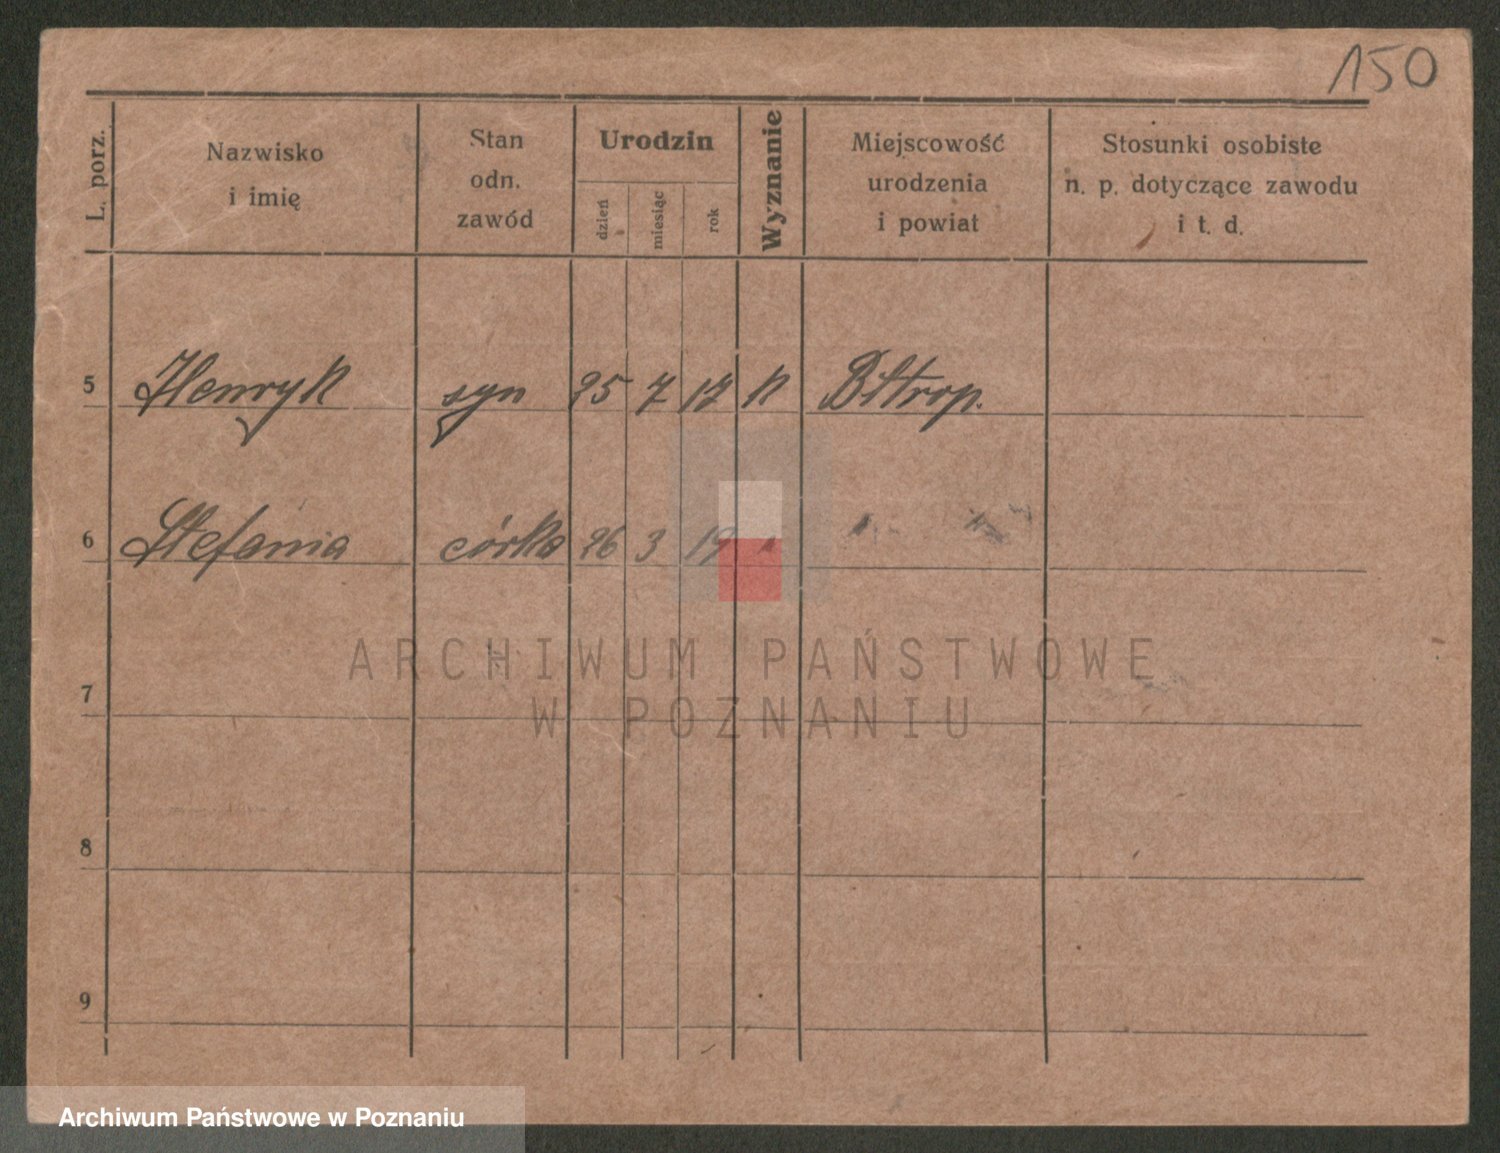 150
L. porz.
Nazwisko
i imię
Stan
odn.
zawód
Urodzin
dzień
miesiąc
rok
Wyznanie
Miejscowość
urodzenia
i powiat
Stosunki osobiste
n. p. dotyczące zawodu
i t. d.
5 Henryk syn 25 7 17 k
6 Stefania córka 26 3 19 "
7
8
9
ARCHIWUM PAŃSTWOWE
W POZNANIU
Archiwum Państwowe w Poznaniu